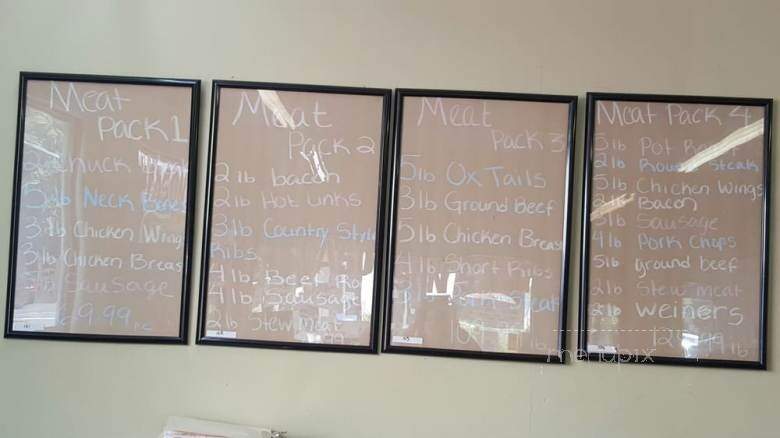 Meat
Pack 1
Chuck
5 lb Neck Bones
3 lb Chicken Wings
3 lb Chicken Breas
Sausage
9.99
Meat
Pack 2
2 lb bacon
2 lb Hot Links
3 lb Country Style
Ribs
4 lb Beef
4 lb Sausage
2 lb Stew meat
Meat
Pack 3
5 lb Ox Tails
3 lb Ground beef
5 lb Chicken Breas
4 lb Short Ribs
Meat Pack 4
5 lb Pot
2 lb Round Steak
5 lb Chicken Wings
2 lb Bacon
Sausage
4 lb Pork Chops
5 lb ground beef
2 lb Stew meat
2 lb Weiners
menupix